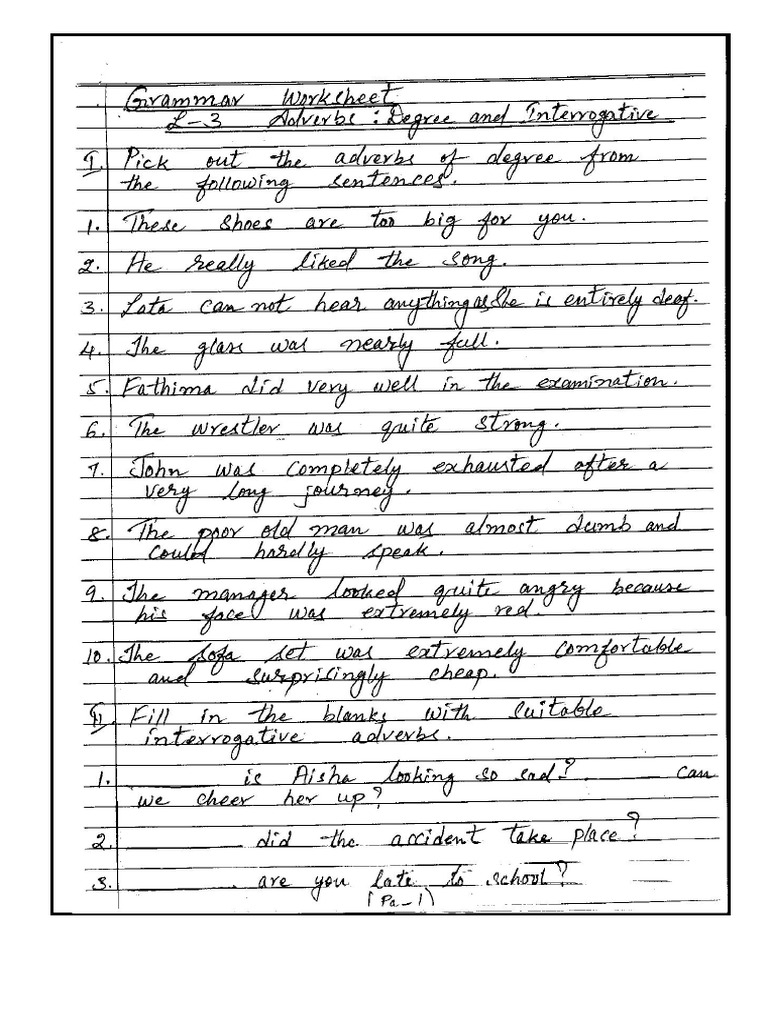 Grammar Worksheet
L-3 Adverbs : Degree and Interrogative
I. Pick out the adverbs of degree from
the following sentences.
1. These shoes are too big for you.
2. He really liked the song.
3. Lata can not hear anything as she is entirely deaf.
4. The glass was nearly full.
5. Fathima did very well in the examination.
6. The wrestler was quite strong.
7. John was completely exhausted after a
very long journey.
8. The poor old man was almost dumb and
could hardly speak.
9. The manager looked quite angry because
his face was extremely red.
10. The sofa set was extremely comfortable
and surprisingly cheap.
II. Fill in the blanks with suitable
interrogative adverbs.
1. ________ is Aisha looking so sad? ____ can
we cheer her up?
2. ________ did the accident take place?
3. ________ are you late to school?
(Pa-1)